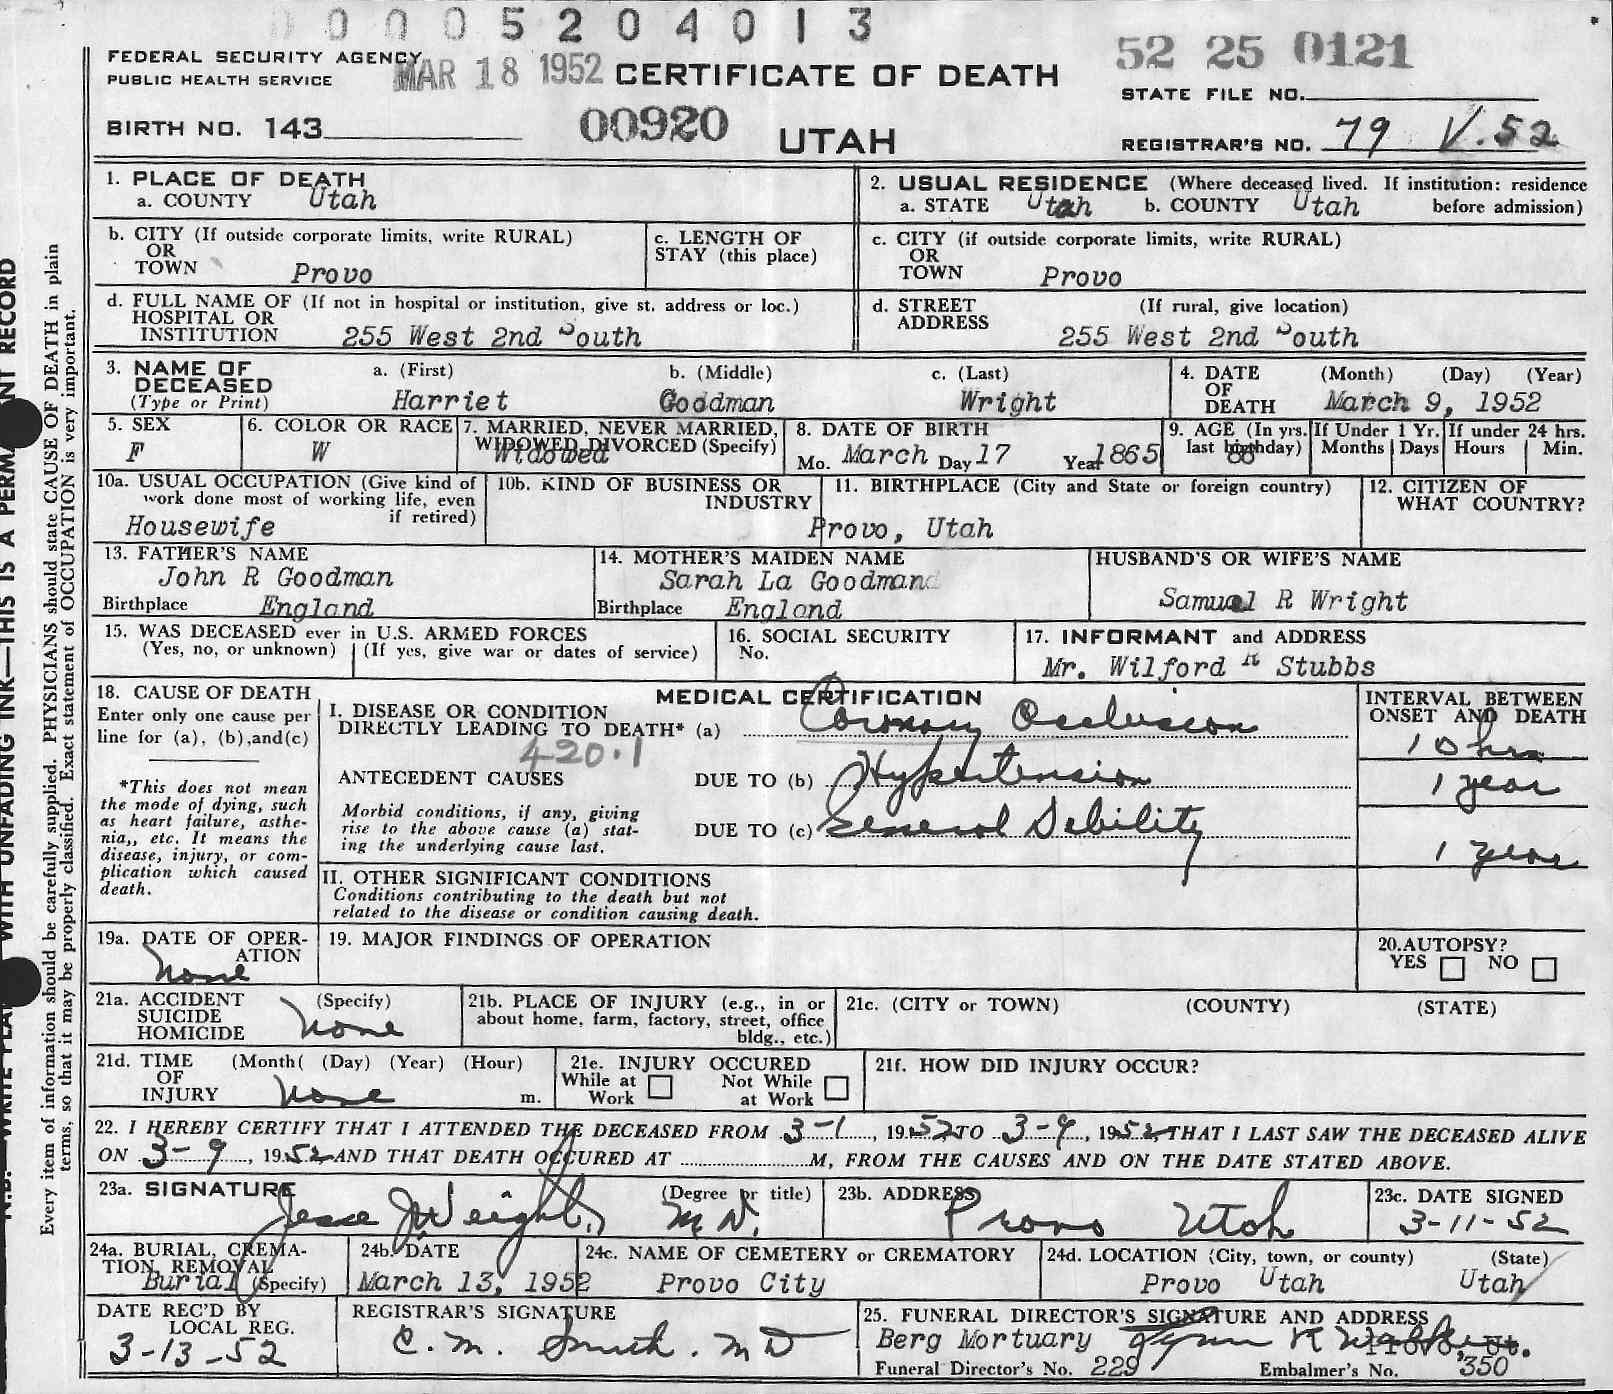 0 0 0 5 2 0 4 0 1 3
FEDERAL SECURITY AGENCY
PUBLIC HEALTH SERVICE
MAR 18 1952
CERTIFICATE OF DEATH
52 25 0121
STATE FILE NO.
BIRTH NO. 143
00920
UTAH
REGISTRAR'S NO. 79 V.52
1. PLACE OF DEATH
a. COUNTY Utah
2. USUAL RESIDENCE (Where deceased lived. If institution: residence
a. STATE Utah b. COUNTY Utah before admission)
b. CITY (If outside corporate limits, write RURAL)
OR
TOWN Provo
c. LENGTH OF
STAY (this place)
c. CITY (if outside corporate limits, write RURAL)
OR
TOWN Provo
d. FULL NAME OF (If not in hospital or institution, give st. address or loc.)
HOSPITAL OR
INSTITUTION 255 West 2nd South
d. STREET (If rural, give location)
ADDRESS
255 West 2nd South
3. NAME OF a. (First) b. (Middle) c. (Last)
DECEASED
(Type or Print) Harriet Goodman Wright
4. DATE (Month) (Day) (Year)
OF
DEATH March 9, 1952
5. SEX
F
6. COLOR OR RACE
W
7. MARRIED, NEVER MARRIED,
WIDOWED DIVORCED (Specify)
Widowed
8. DATE OF BIRTH
Mo. March Day 17 Year 1865
9. AGE (In yrs.
last birthday)
If Under 1 Yr.
Months Days
If under 24 hrs.
Hours Min.
10a. USUAL OCCUPATION (Give kind of
work done most of working life, even
if retired)
Housewife
10b. KIND OF BUSINESS OR
INDUSTRY
11. BIRTHPLACE (City and State or foreign country)
Provo, Utah
12. CITIZEN OF
WHAT COUNTRY?
13. FATHER'S NAME
John R Goodman
Birthplace England
14. MOTHER'S MAIDEN NAME
Sarah La Goodman
Birthplace England
HUSBAND'S OR WIFE'S NAME
Samuel R Wright
15. WAS DECEASED ever in U.S. ARMED FORCES
(Yes, no, or unknown) (If yes, give war or dates of service)
16. SOCIAL SECURITY
No.
17. INFORMANT and ADDRESS
Mr. Wilford R Stubbs
18. CAUSE OF DEATH
Enter only one cause per
line for (a), (b), and (c)
*This does not mean
the mode of dying, such
as heart failure, asthe-
nia,, etc. It means the
disease, injury, or com-
plication which caused
death.
MEDICAL CERTIFICATION
I. DISEASE OR CONDITION
DIRECTLY LEADING TO DEATH* (a) Coronary Occlusion
420.1
ANTECEDENT CAUSES DUE TO (b) Hypertension
Morbid conditions, if any, giving
rise to the above cause (a) stat- DUE TO (c) General Debility
ing the underlying cause last.
INTERVAL BETWEEN
ONSET AND DEATH
10 hrs
1 year
1 year
II. OTHER SIGNIFICANT CONDITIONS
Conditions contributing to the death but not
related to the disease or condition causing death.
19a. DATE OF OPER-
ATION
None
19. MAJOR FINDINGS OF OPERATION
20. AUTOPSY?
YES NO
21a. ACCIDENT (Specify)
SUICIDE
HOMICIDE None
21b. PLACE OF INJURY (e.g., in or
about home, farm, factory, street, office
bldg., etc.)
21c. (CITY or TOWN) (COUNTY) (STATE)
21d. TIME (Month( (Day) (Year) (Hour)
OF
INJURY None m.
21e. INJURY OCCURED
While at Not While
Work at Work
21f. HOW DID INJURY OCCUR?
22. I HEREBY CERTIFY THAT I ATTENDED THE DECEASED FROM 3-1, 1952 TO 3-9, 1952, THAT I LAST SAW THE DECEASED ALIVE
ON 3-9, 1952 AND THAT DEATH OCCURED AT M, FROM THE CAUSES AND ON THE DATE STATED ABOVE.
23a. SIGNATURE (Degree or title)
Jesse J Weight, M D.
23b. ADDRESS
Provo Utah
23c. DATE SIGNED
3-11-52
24a. BURIAL, CREMA-
TION, REMOVAL
Burial (Specify)
24b. DATE
March 13, 1952
24c. NAME OF CEMETERY or CREMATORY
Provo City
24d. LOCATION (City, town, or county) (State)
Provo Utah Utah
DATE REC'D BY
LOCAL REG.
3-13-52
REGISTRAR'S SIGNATURE
C. M. Smith. M D
25. FUNERAL DIRECTOR'S SIGNATURE AND ADDRESS
Berg Mortuary Provo, Ut.
Funeral Director's No. 229 Embalmer's No. 350
Every item of information should be carefully supplied. PHYSICIANS should state CAUSE OF DEATH in plain
terms, so that it may be properly classified. Exact statement of OCCUPATION is very important.
WITH UNFADING INK—THIS IS A RECORD